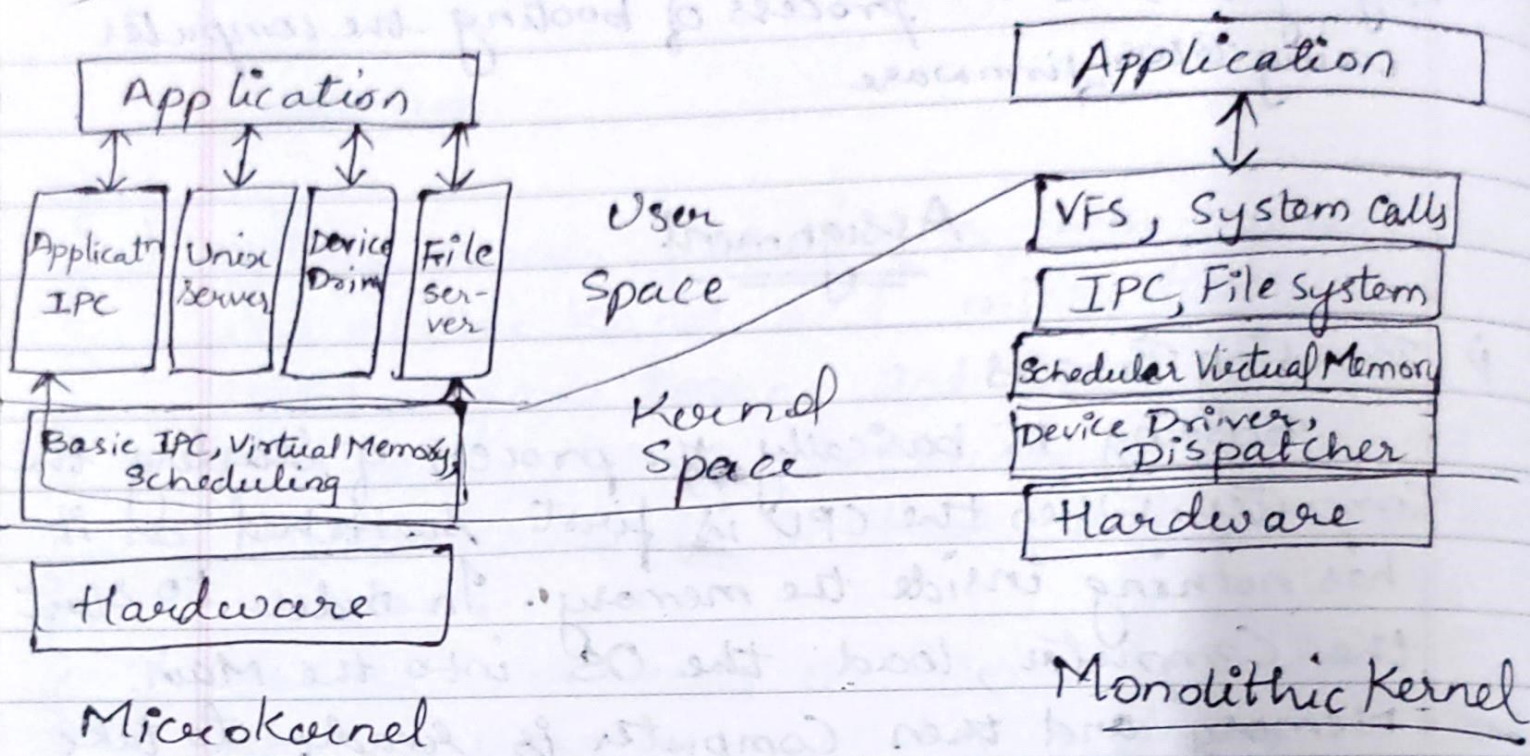 Application
Applicatn
IPC
Unix
Server
Device
Driv
File
ser-
ver
Basic IPC, Virtual Memory,
Scheduling
Hardware
Microkernel
User
Space
Kernel
Space
Application
VFS, System Calls
IPC, File System
Schedular Virtual Memory
Device Driver,
Dispatcher
Hardware
Monolithic Kernel